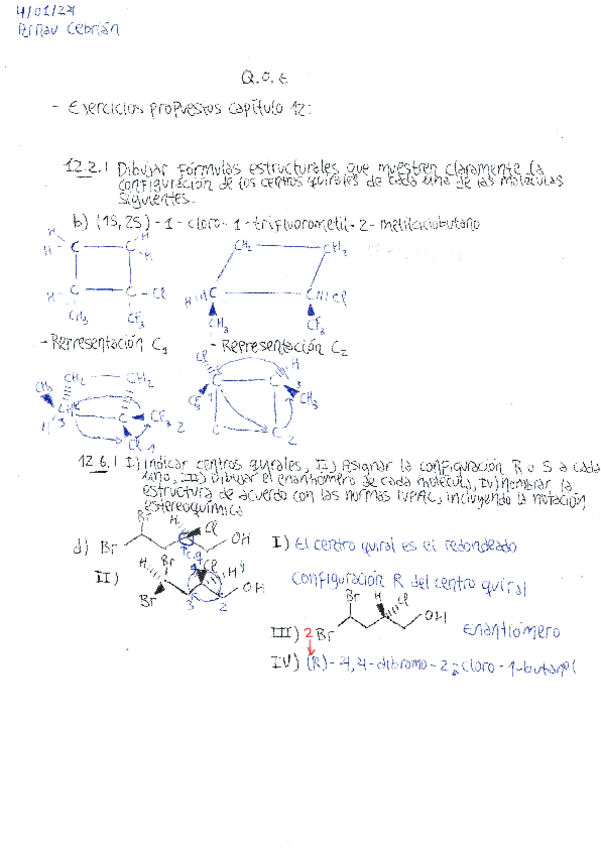 4/01/24
Arnau Cebrián
Q.O.E
- Ejercicios propuestos capítulo 12:
12.2.1 Dibujar fórmulas estructurales que muestren claramente la
configuración de los centros quirales de cada una de las moléculas
siguientes.
b) (1S,2S)-1-cloro-1-trifluorometil-2-metilciclobutano
H H
H C C H
CH2 CH2
H C C Cl
H C C Cl
CH3 CF3
CH3 CF3
- Representación C1 - Representación C2
CH3 CH2 CH2
Cl H
C C 3
CF3 1 CH3
H 3 C CF3 2
Cl 1
C C 2
12.6.1 I) Indicar centros quirales, II) Asignar la configuración R o S a cada
uno, III) Dibujar el enantiómero de cada molécula, IV) nombrar la
estructura de acuerdo con las normas IUPAC, incluyendo la notación
estereoquímica
d) Br Br H Cl OH I) El centro quiral es el redondeado
II) H Br Br Cl H 4 OH 3 2 Configuración R del centro quiral
III) Br Br H Cl OH Enantiómero
2
IV) (R)-4,4-dibromo-2-cloro-1-butanol